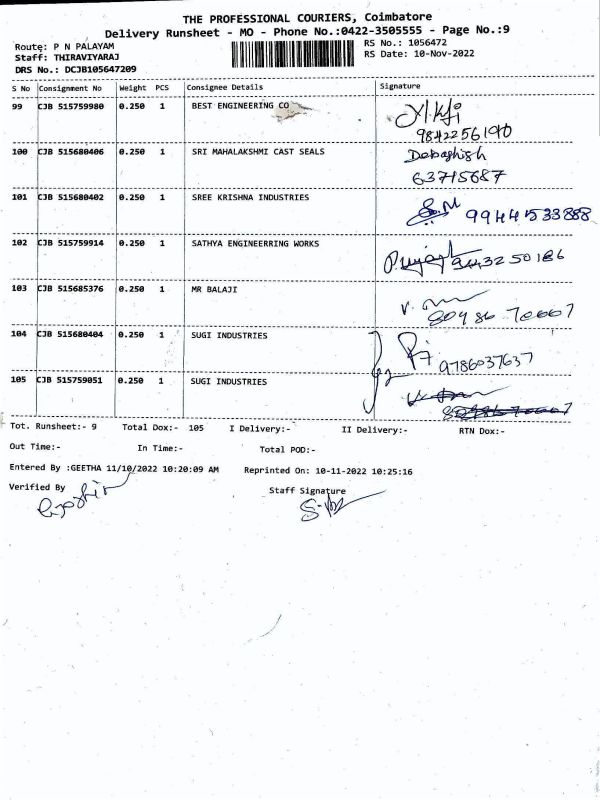 THE PROFESSIONAL COURIERS, Coimbatore
Delivery Runsheet - MO - Phone No.:0422-3505555 - Page No.:9
Route: P N PALAYAM RS No.: 1056472
Staff: THIRAVIYARAJ RS Date: 10-Nov-2022
DRS No.: DCJB105647209
S No Consignment No Weight PCS Consignee Details Signature
99 CJB 515759980 0.250 1 BEST ENGINEERING CO
9842256190
100 CJB 515680406 0.250 1 SRI MAHALAKSHMI CAST SEALS Debashish
63715687
101 CJB 515680402 0.250 1 SREE KRISHNA INDUSTRIES 9944533888
102 CJB 515759914 0.250 1 SATHYA ENGINEERRING WORKS 9443250186
103 CJB 515685376 0.250 1 MR BALAJI
104 CJB 515680404 0.250 1 SUGI INDUSTRIES 9786037637
105 CJB 515759051 0.250 1 SUGI INDUSTRIES
Tot. Runsheet:- 9 Total Dox:- 105 I Delivery:- II Delivery:- RTN Dox:-
Out Time:- In Time:- Total POD:-
Entered By :GEETHA 11/10/2022 10:20:09 AM Reprinted On: 10-11-2022 10:25:16
Verified By Staff Signature